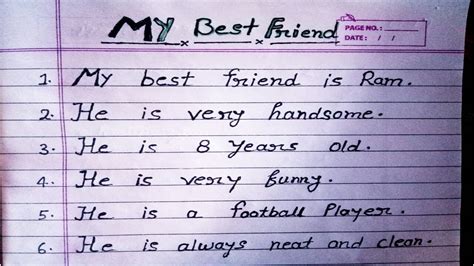 My Best Friend
PAGE NO.:
DATE: / /
1. My best friend is Ram.
2. He is very handsome.
3. He is 8 years old.
4. He is very funny.
5. He is a football Player.
6. He is always neat and clean.